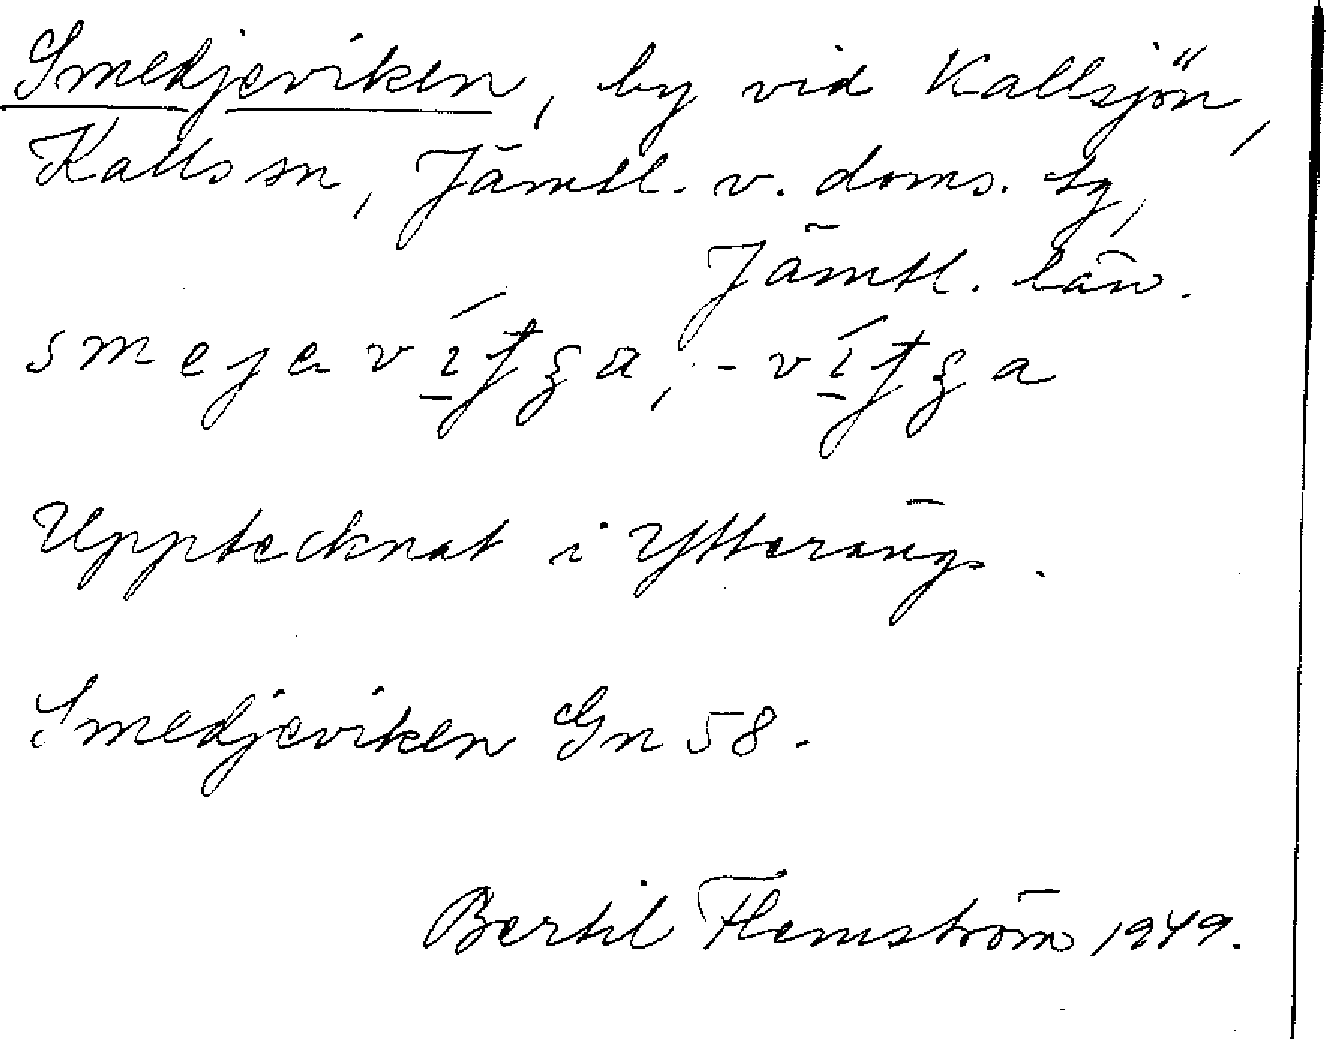 Smedjeviken, by vid Kallsjön,
Kalls sn, Jämtl. v. doms. tg,
Jämtl. län.
Upptecknat i Ytteräng.
Smedjeviken Gn 58.
Bertil Flemström 1949.